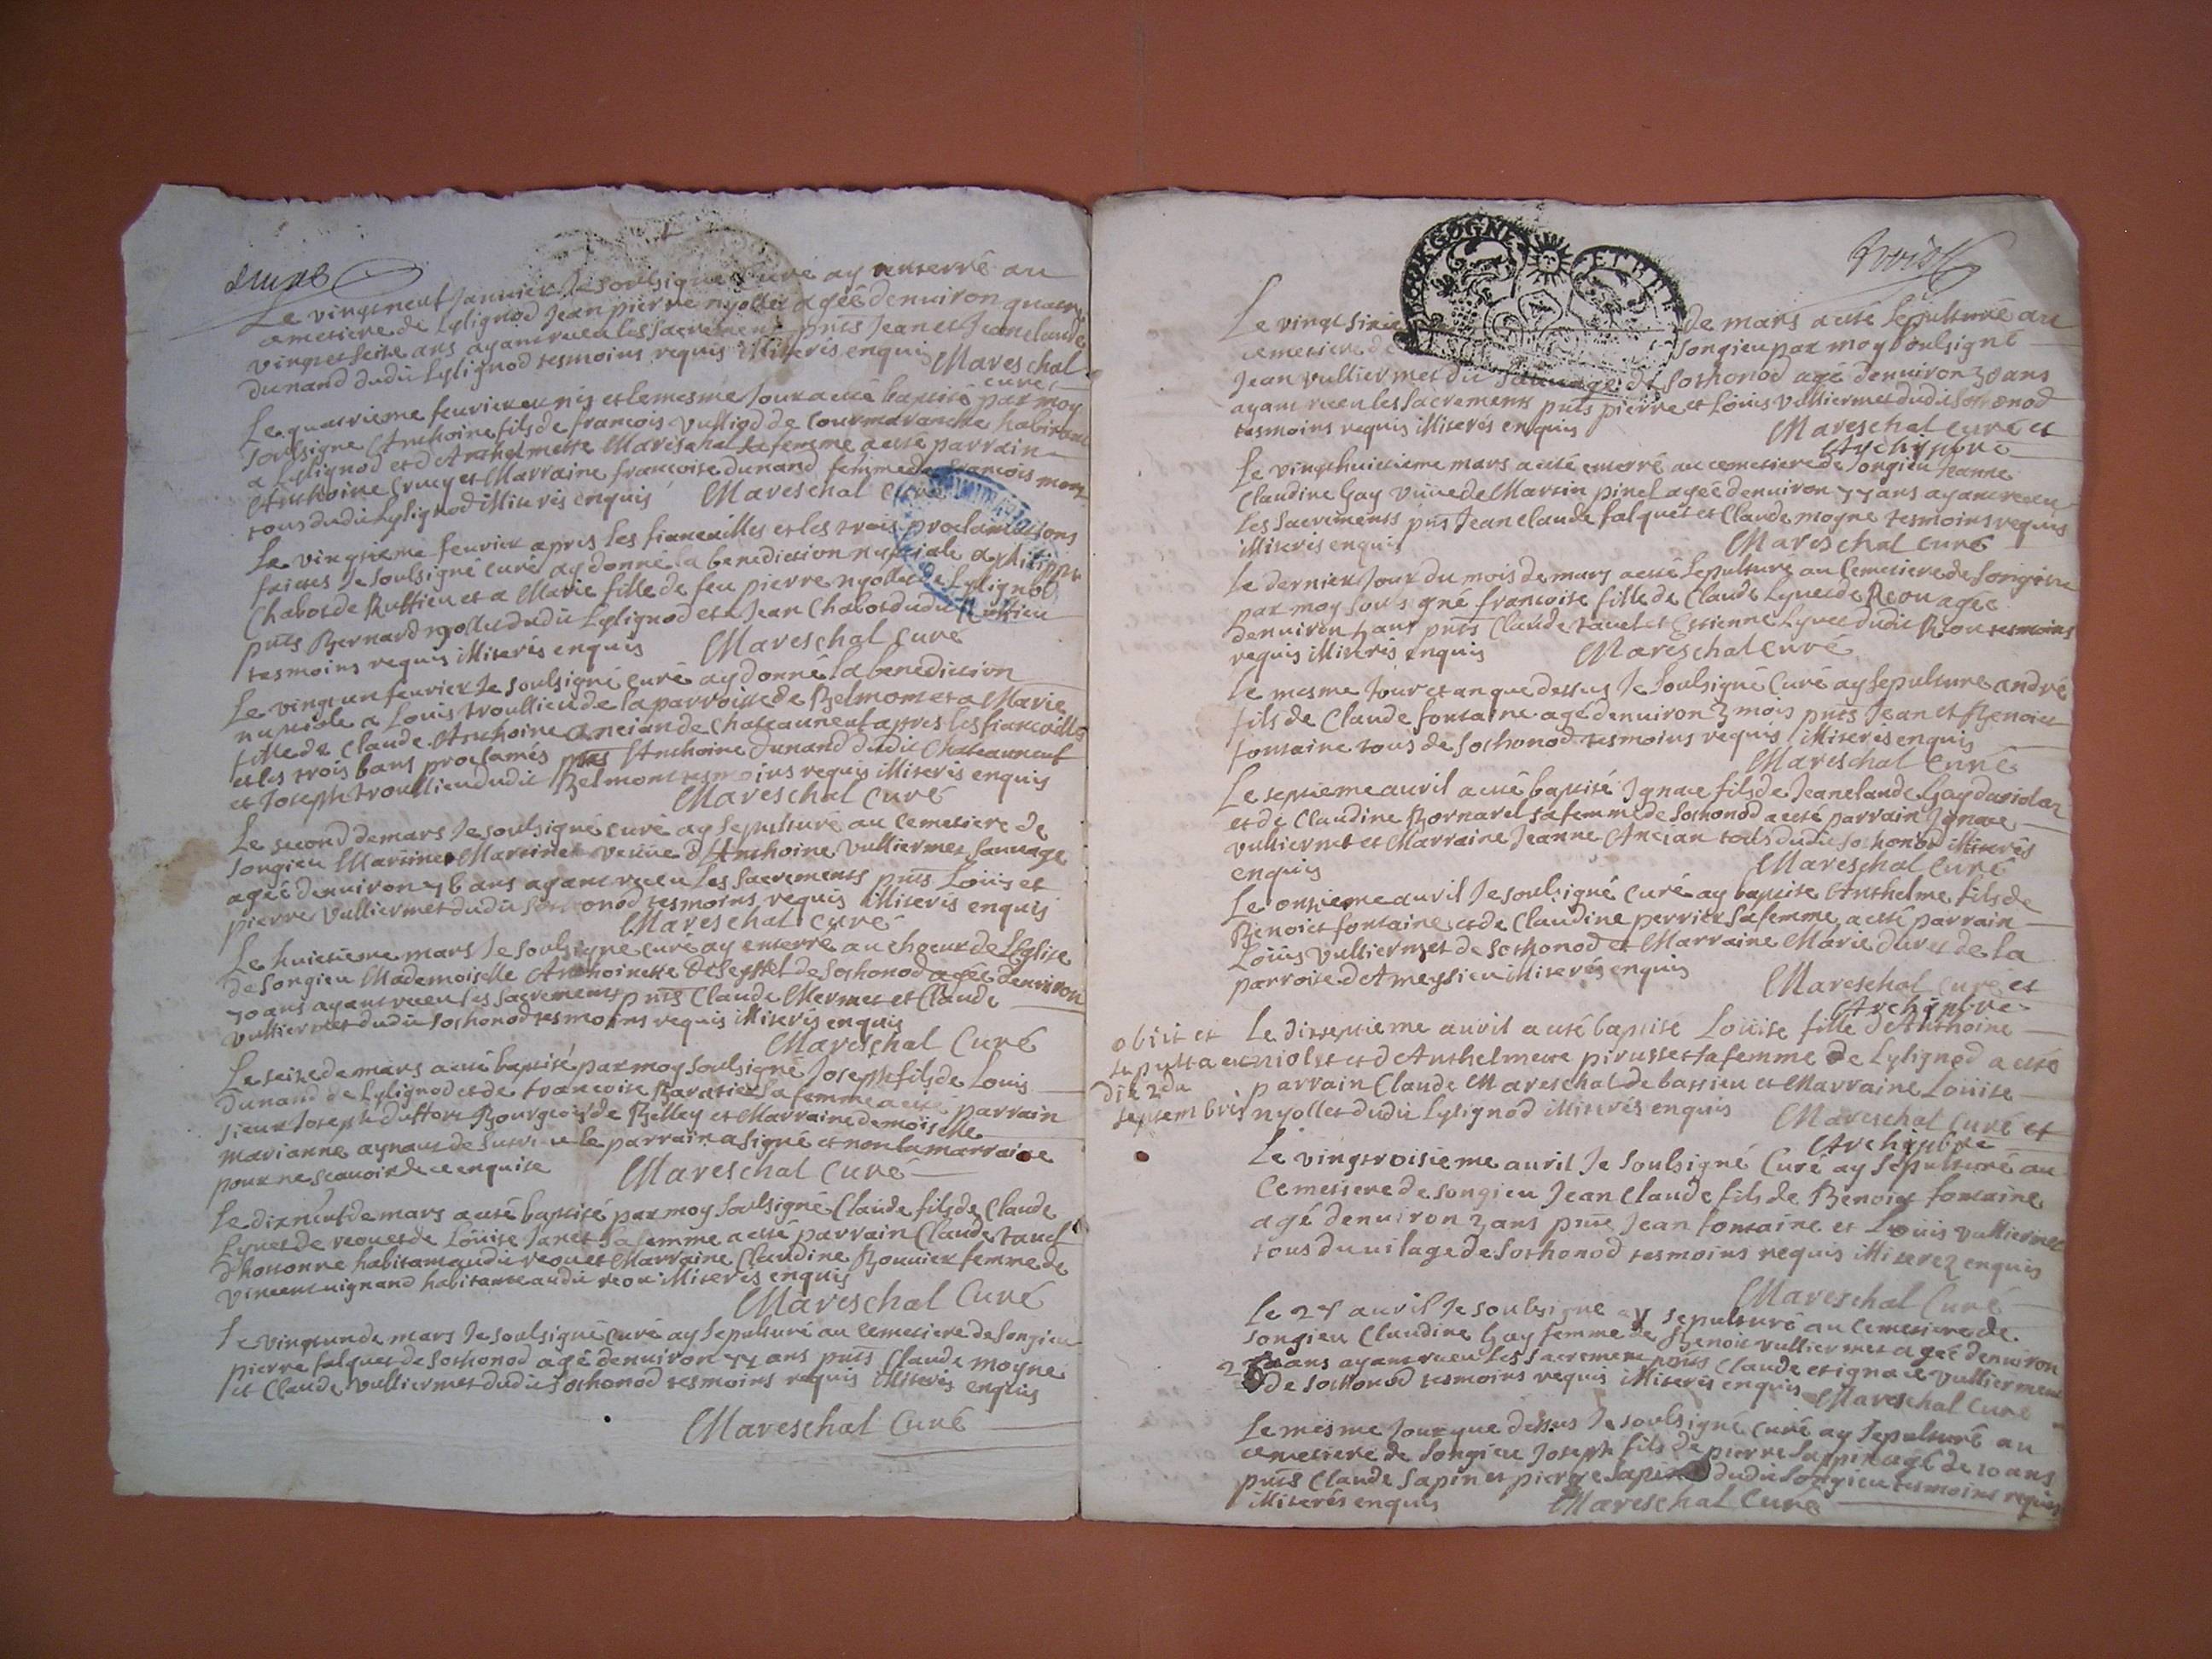 Le vingtneuf Janvier Je soulsigné Curé ay enterré au
cemetiere de Lylignod Jean pierre nyollet agée denuiron quatre
vingt et seise ans ayant receu les Sacrements pnts Jean et Jeanclaude
dunand dudit Lylignod tesmoins requis illiterés enquis Mareschal
curé
Le quatrieme feurier et le mesme Jour a esté baptisé par moy
soulsigné Anthoine fils de francois vulliod de Courmaranche habitant
a Lylignod et d'Anthelmette Mareschal sa femme a esté parrain
Anthoine Cruey et Marraine francoise dunand femme de francois
tous dudit Lylignod illiterés enquis Mareschal Curé
Le vingtieme feurier apres les fiancailles et les trois proclamations
faictes Je soulsigné curé ay donné la benediction nuptiale a philippe
Chabot de Ruffieu et a Marie fille de feu pierre nyollet de Lylignod
pnts Bernard nyollet dudit Lylignod et Jean Chabot dudit Ruffieu
tesmoins requis illiterés enquis Mareschal curé
Le vingt un feurier Je soulsigné curé ay donné la benediction
nuptiale a Louis troullieu de la parroisse de Belmont et a Marie
fille de Claude Anthoine Ancian de Chateauneuf apres les fiancailles
et les trois bans proclamés pnts Anthoine dunand dudit Chateauneuf
et Joseph troullieu dudit Belmont tesmoins requis illiterés enquis
Mareschal Curé
Le second de mars Je soulsigné curé ay sepulturé au Cemetiere de
Songieu Martine Martinet veuue d'Anthoine vulliermet Sauuage
agée denuiron ans ayant receu les Sacrements pnts Loüis et
pierre vulliermet dudit Sothonod tesmoins requis illiterés enquis
Mareschal curé
Le huictieme mars Je soulsigné curé ay enterré au choeur de L'Eglise
de Songieu Mademoiselle Anthoinette deseyssel de Sothonod agée denuiron
70 ans ayant receu les Sacrements pnts Claude Mermet et Claude
vulliermet dudit Sothonod tesmoins requis illiterés enquis
Mareschal Curé
Le seise de mars a esté baptisé par moy soulsigné Joseph fils de Louis
dunand de Lylignod et de francoise sa femme a esté parrain
sieur Joseph duffort Bourgeois de Belley et Marraine demoiselle
marianne le parrain a signé et non la marraine
pour ne scauoir de ce enquise Mareschal Curé
Le dixneuf de mars a esté baptisé par moy soulsigné Claude fils de Claude
Lyuet de reou et de Loüise Janet sa femme a esté parrain Claude tauel
d'hotonne habitant audit reou et Marraine Claudine Bouuier femme de
vincent uignand habitante audit reou illiterés enquis
Mareschal Curé
Le vingt un de mars Je soulsigné curé ay sepulturé au Cemetiere de Songieu
pierre falquet de Sothonod agé denuiron ans pnts Claude moyne
et Claude vulliermet dudit Sothonod tesmoins requis illiterés enquis
Mareschal Curé
BOURGOGNE ET BR
trois
Le vingt de mars a esté sepulturé au
cemetiere de Songieu par moy soulsigné
Jean vulliermet dit Sauuage de Sothonod agé denuiron 30 ans
ayant receu les Sacrements pnts pierre et Loüis vulliermet dudit Sothonod
tesmoins requis illiterés enquis Mareschal curé et
Archiprbre
Le vingthuictieme mars a esté enterré au cemetiere de Songieu Jeanne
Claudine Gay veuue de Martin pinel agée denuiron ans ayant receu
les Sacrements pnts Jean claude falquet et Claude moyne tesmoins requis
illiterés enquis Mareschal curé
Le dernier Jour du mois de mars a esté sepulturé au Cemetiere de Songieu
par moy soulsigné francoise fille de Claude Lyuet de Reou agée
denuiron ans pnts Claude tauel et Estienne Lyuet dudit Reou tesmoins
requis illiterés enquis Mareschal curé
Le mesme Jour et an que dessus Je soulsigné Curé ay sepulturé andré
fils de Claude fontaine agé denuiron 3 mois pnts Jean et Benoict
fontaine tous de Sothonod tesmoins requis illiterés enquis
Mareschal Curé
Le septieme auril a esté baptisé Ignace fils de Jeanclaude Gay
et de Claudine Bornarel sa femme de Sothonod a esté parrain Ignace
vulliermet et Marraine Jeanne Ancian tous dudit Sothonod illiterés
enquis Mareschal Curé
Le onsieme auril Je soulsigné curé ay baptisé Anthelme fils de
Benoict fontaine et de Claudine perrier sa femme a esté parrain
Loüis vulliermet de Sothonod et Marraine Marie duret de la
parroise d'Ameysieu illiterés enquis Mareschal curé et
Archiprbre
obiit et
sepulta
die 2da
septembris
Le dixseptieme auril a esté baptisé Loüise fille d'Anthoine
niolet et d'Anthelmette sa femme de Lylignod a esté
parrain Claude Mareschal de bassieu et Marraine Loüise
nyollet dudit Lylignod illiterés enquis Mareschal curé et
Archiprbre
Le vingtroisieme auril Je soulsigné Curé ay sepulturé au
Cemetiere de songieu Jean Claude fils de Benoict fontaine
agé denuiron 3 ans pnts Jean fontaine et Loüis vulliermet
tous du uilage de Sothonod tesmoins requis illiterez enquis
Mareschal Curé
Le auril Je soulsigné ay sepulturé au Cemetiere de
songieu Claudine Gay femme de Benoit vulliermet agée denuiron
ans ayant receu les Sacrements pnts Claude et ignace vulliermet
de Sothonod tesmoins requis illiterés enquis Mareschal Curé
Le mesme Jour que dessus Je soulsigné curé ay sepulturé au
cemetiere de Songieu Joseph fils de pierre Sappin agé de 10 ans
pnts Claude Sapin et pierre Sapin dudit Songieu tesmoins requis
illiterés enquis Mareschal Curé